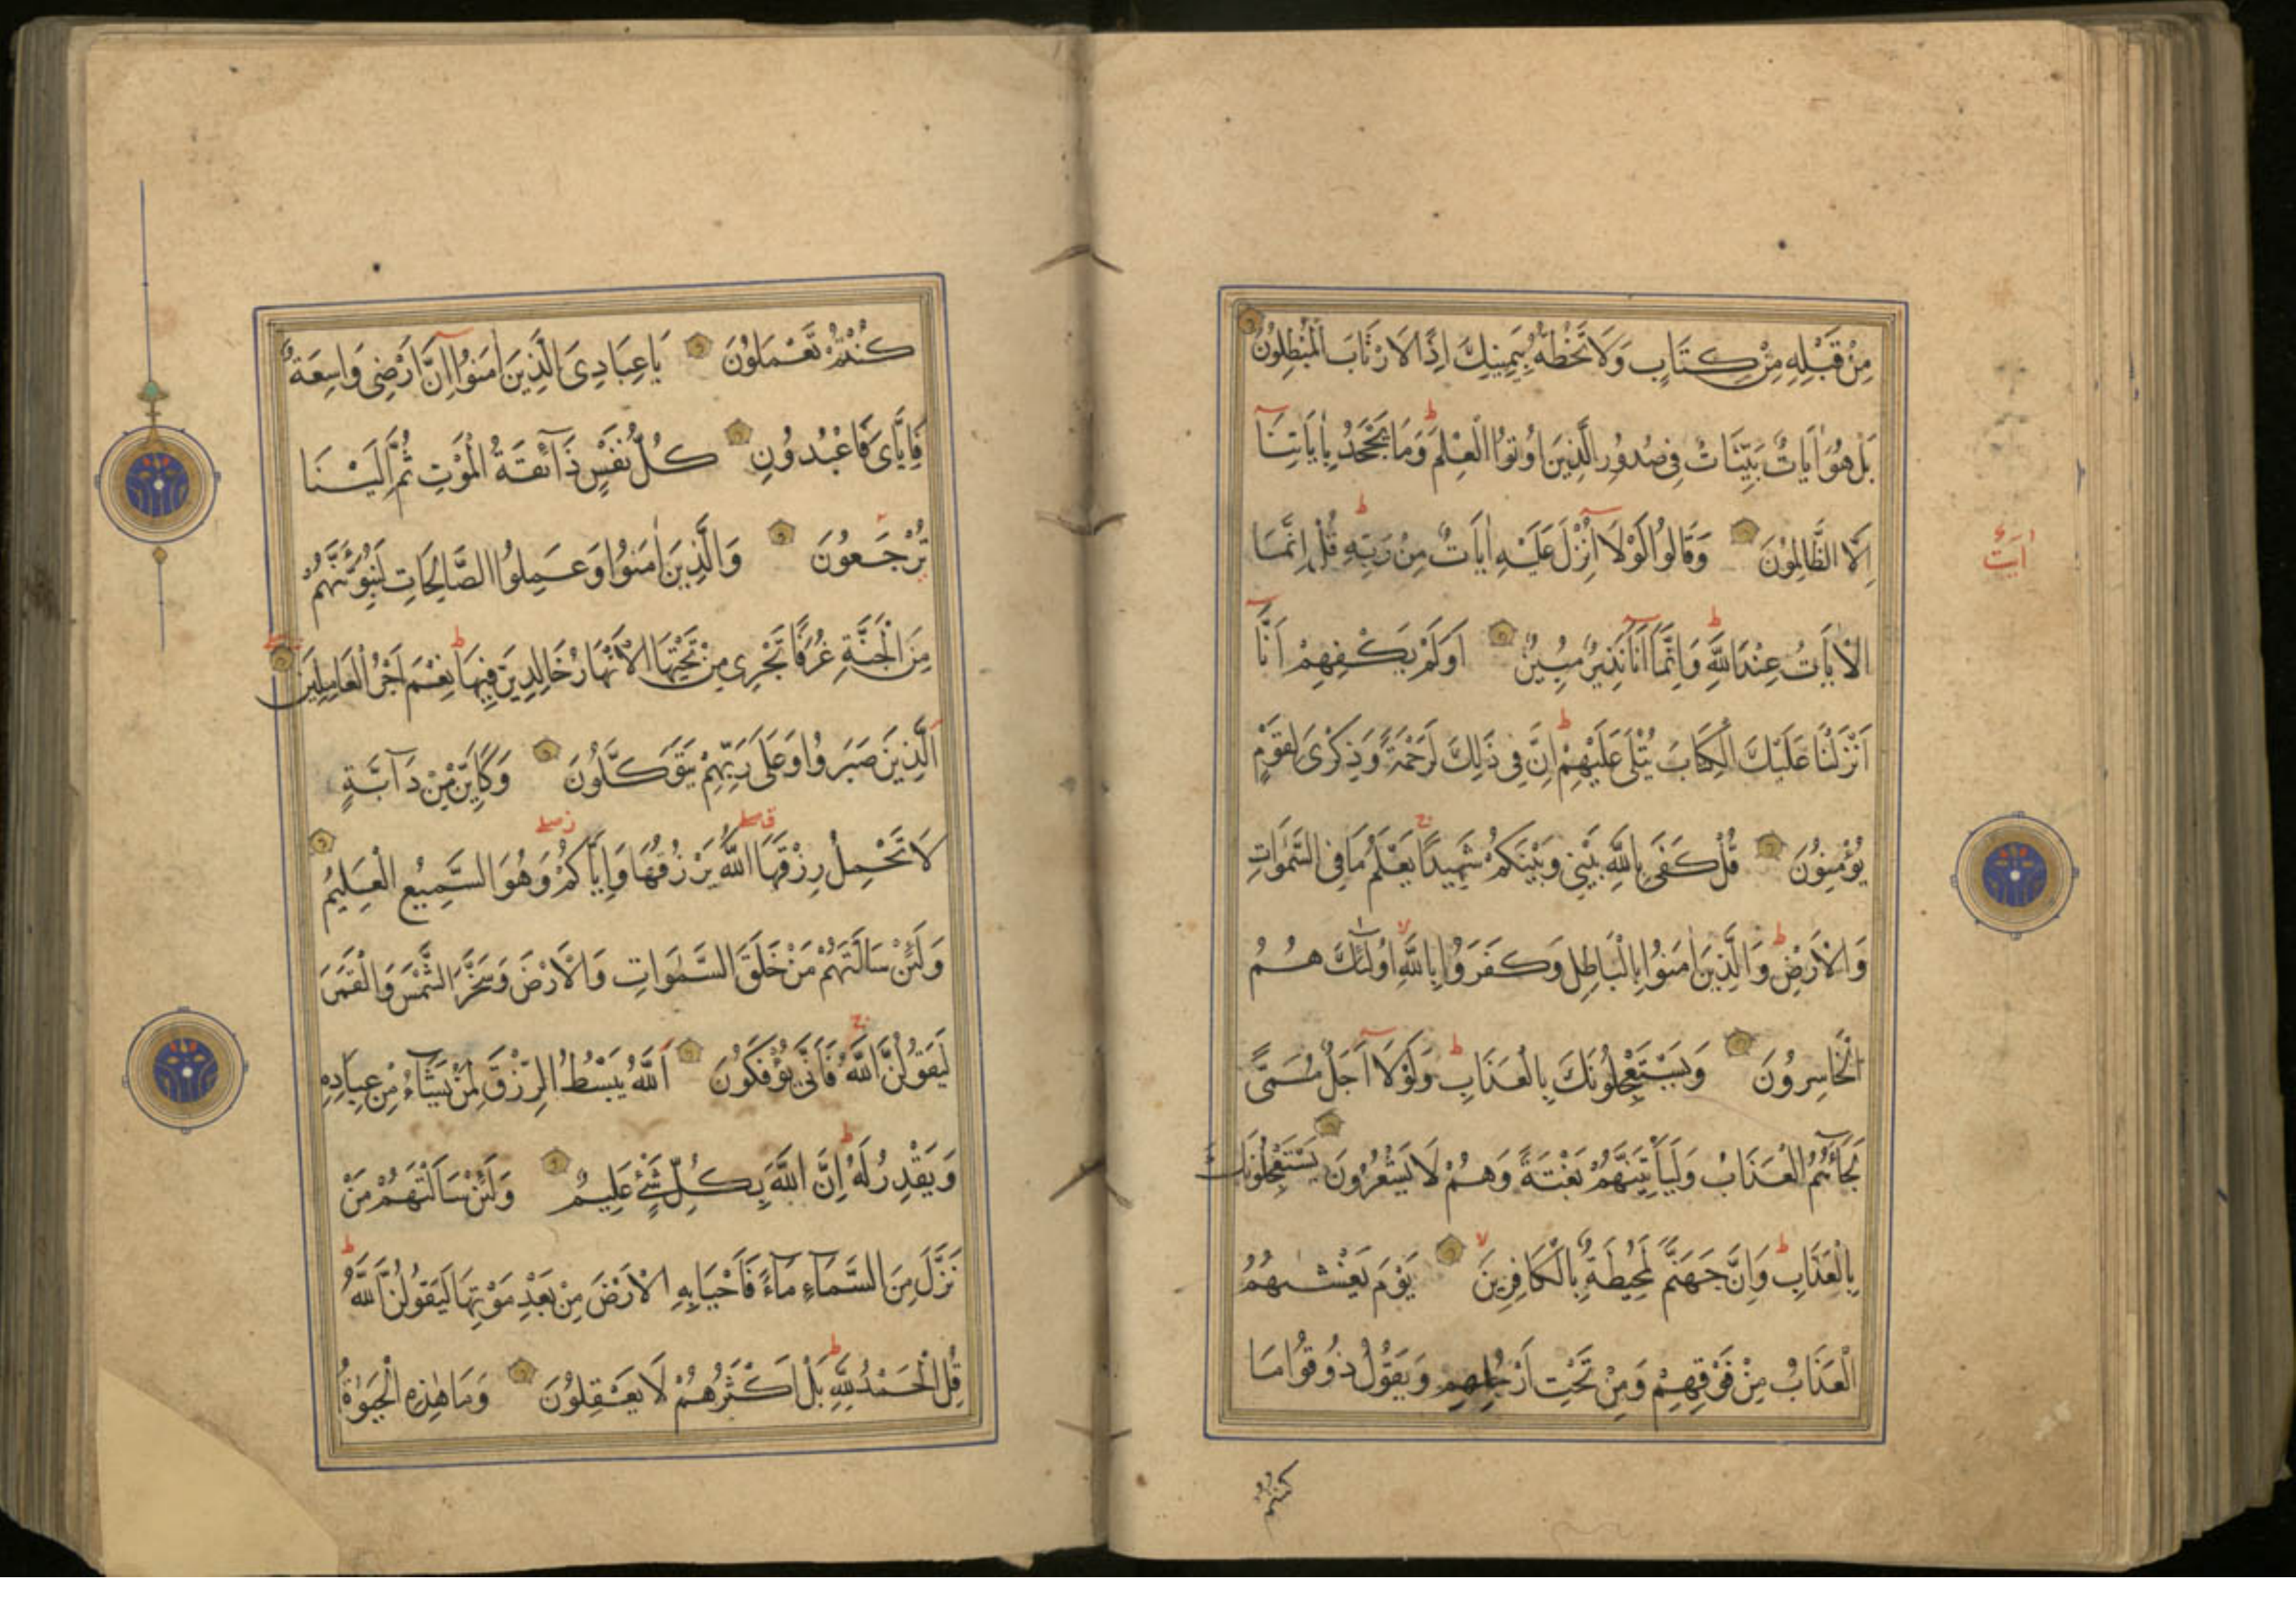 مِنْ قَبْلِهِ مِنْ كِتَابٍ وَلَا تَخُطُّهُ بِيَمِينِكَ إِذًا لَارْتَابَ الْمُبْطِلُونَ
بَلْ هُوَ اٰيَاتٌ بَيِّنَاتٌ فِي صُدُورِ الَّذِينَ اُوتُوا الْعِلْمَ وَمَا يَجْحَدُ بِاٰيَاتِنَا
اِلَّا الظَّالِمُونَ وَقَالُوا لَوْلَا اُنْزِلَ عَلَيْهِ اٰيَاتٌ مِنْ رَبِّهِ قُلْ اِنَّمَا
اٰيَتٌ
الْاٰيَاتُ عِنْدَ اللَّهِ وَاِنَّمَا اَنَا نَذِيرٌ مُبِينٌ اَوَلَمْ يَكْفِهِمْ اَنَّا
اَنْزَلْنَا عَلَيْكَ الْكِتَابَ يُتْلَى عَلَيْهِمْ اِنَّ فِي ذٰلِكَ لَرَحْمَةً وَذِكْرَى لِقَوْمٍ
يُؤْمِنُونَ قُلْ كَفَى بِاللَّهِ بَيْنِي وَبَيْنَكُمْ شَهِيدًا يَعْلَمُ مَا فِي السَّمٰوَاتِ
وَالْاَرْضِ وَالَّذِينَ اٰمَنُوا بِالْبَاطِلِ وَكَفَرُوا بِاللَّهِ اُولٰئِكَ هُمُ
الْخَاسِرُونَ وَيَسْتَعْجِلُونَكَ بِالْعَذَابِ وَلَوْلَا اَجَلٌ مُسَمًّى
لَجَاۤءَهُمُ الْعَذَابُ وَلَيَاْتِيَنَّهُمْ بَغْتَةً وَهُمْ لَا يَشْعُرُونَ يَسْتَعْجِلُونَكَ
بِالْعَذَابِ وَاِنَّ جَهَنَّمَ لَمُحِيطَةٌ بِالْكَافِرِينَ يَوْمَ يَغْشٰىهُمُ
الْعَذَابُ مِنْ فَوْقِهِمْ وَمِنْ تَحْتِ اَرْجُلِهِمْ وَيَقُولُ ذُوقُوا مَا
كُنْتُمْ
كُنْتُمْ تَعْمَلُونَ يَا عِبَادِيَ الَّذِينَ اٰمَنُوا اِنَّ اَرْضِي وَاسِعَةٌ
فَاِيَّايَ فَاعْبُدُونِ كُلُّ نَفْسٍ ذَاۤئِقَةُ الْمَوْتِ ثُمَّ اِلَيْنَا
تُرْجَعُونَ وَالَّذِينَ اٰمَنُوا وَعَمِلُوا الصَّالِحَاتِ لَنُبَوِّئَنَّهُمْ
مِنَ الْجَنَّةِ غُرَفًا تَجْرِي مِنْ تَحْتِهَا الْاَنْهَارُ خَالِدِينَ فِيهَا نِعْمَ اَجْرُ الْعَامِلِينَ
اَلَّذِينَ صَبَرُوا وَعَلَى رَبِّهِمْ يَتَوَكَّلُونَ وَكَاَيِّنْ مِنْ دَاۤبَّةٍ
لَا تَحْمِلُ رِزْقَهَا اللَّهُ يَرْزُقُهَا وَاِيَّاكُمْ وَهُوَ السَّمِيعُ الْعَلِيمُ
وَلَئِنْ سَاَلْتَهُمْ مَنْ خَلَقَ السَّمٰوَاتِ وَالْاَرْضَ وَسَخَّرَ الشَّمْسَ وَالْقَمَرَ
لَيَقُولُنَّ اللَّهُ فَاَنَّى يُؤْفَكُونَ اَللَّهُ يَبْسُطُ الرِّزْقَ لِمَنْ يَشَاۤءُ مِنْ عِبَادِهِ
وَيَقْدِرُ لَهُ اِنَّ اللَّهَ بِكُلِّ شَيْءٍ عَلِيمٌ وَلَئِنْ سَاَلْتَهُمْ مَنْ
نَزَّلَ مِنَ السَّمَاۤءِ مَاۤءً فَاَحْيَا بِهِ الْاَرْضَ مِنْ بَعْدِ مَوْتِهَا لَيَقُولُنَّ اللَّهُ
قُلِ الْحَمْدُ لِلَّهِ بَلْ اَكْثَرُهُمْ لَا يَعْقِلُونَ وَمَا هٰذِهِ الْحَيٰوةُ